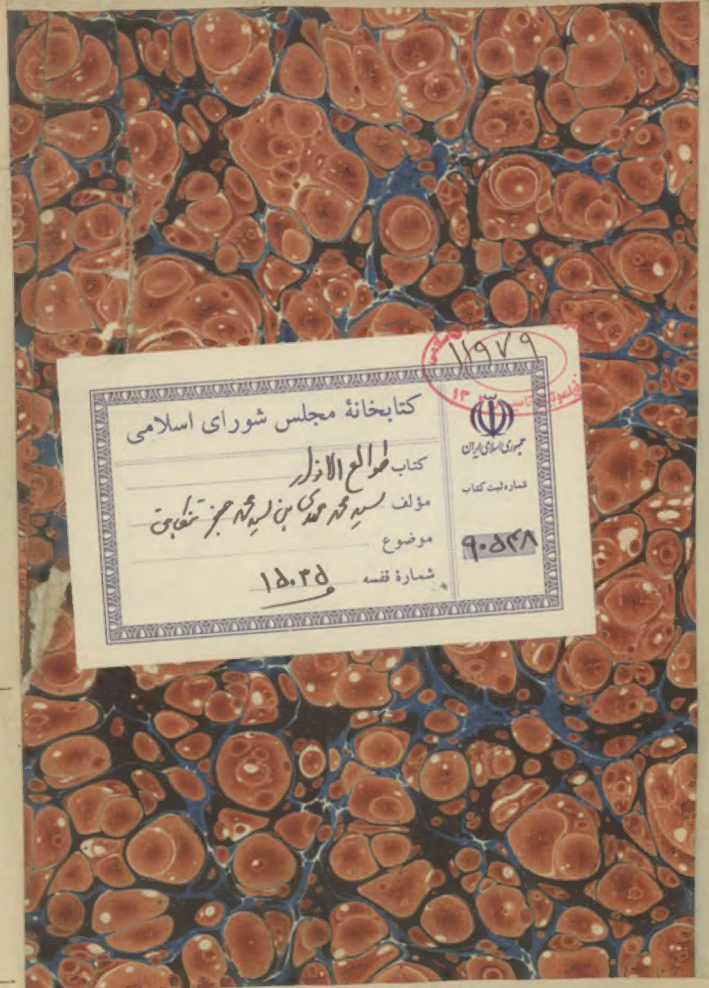 ۱۱۹۷۹
کتابخانهٔ مجلس شورای اسلامی
کتاب طوالع الانوار
مؤلف سید محمد مهدی بن سید محمد جعفر تنکابنی
موضوع
شمارهٔ قفسه ۱۵۰۳۵
جمهوری اسلامی ایران
شماره ثبت کتاب
۹۰۵۴۸